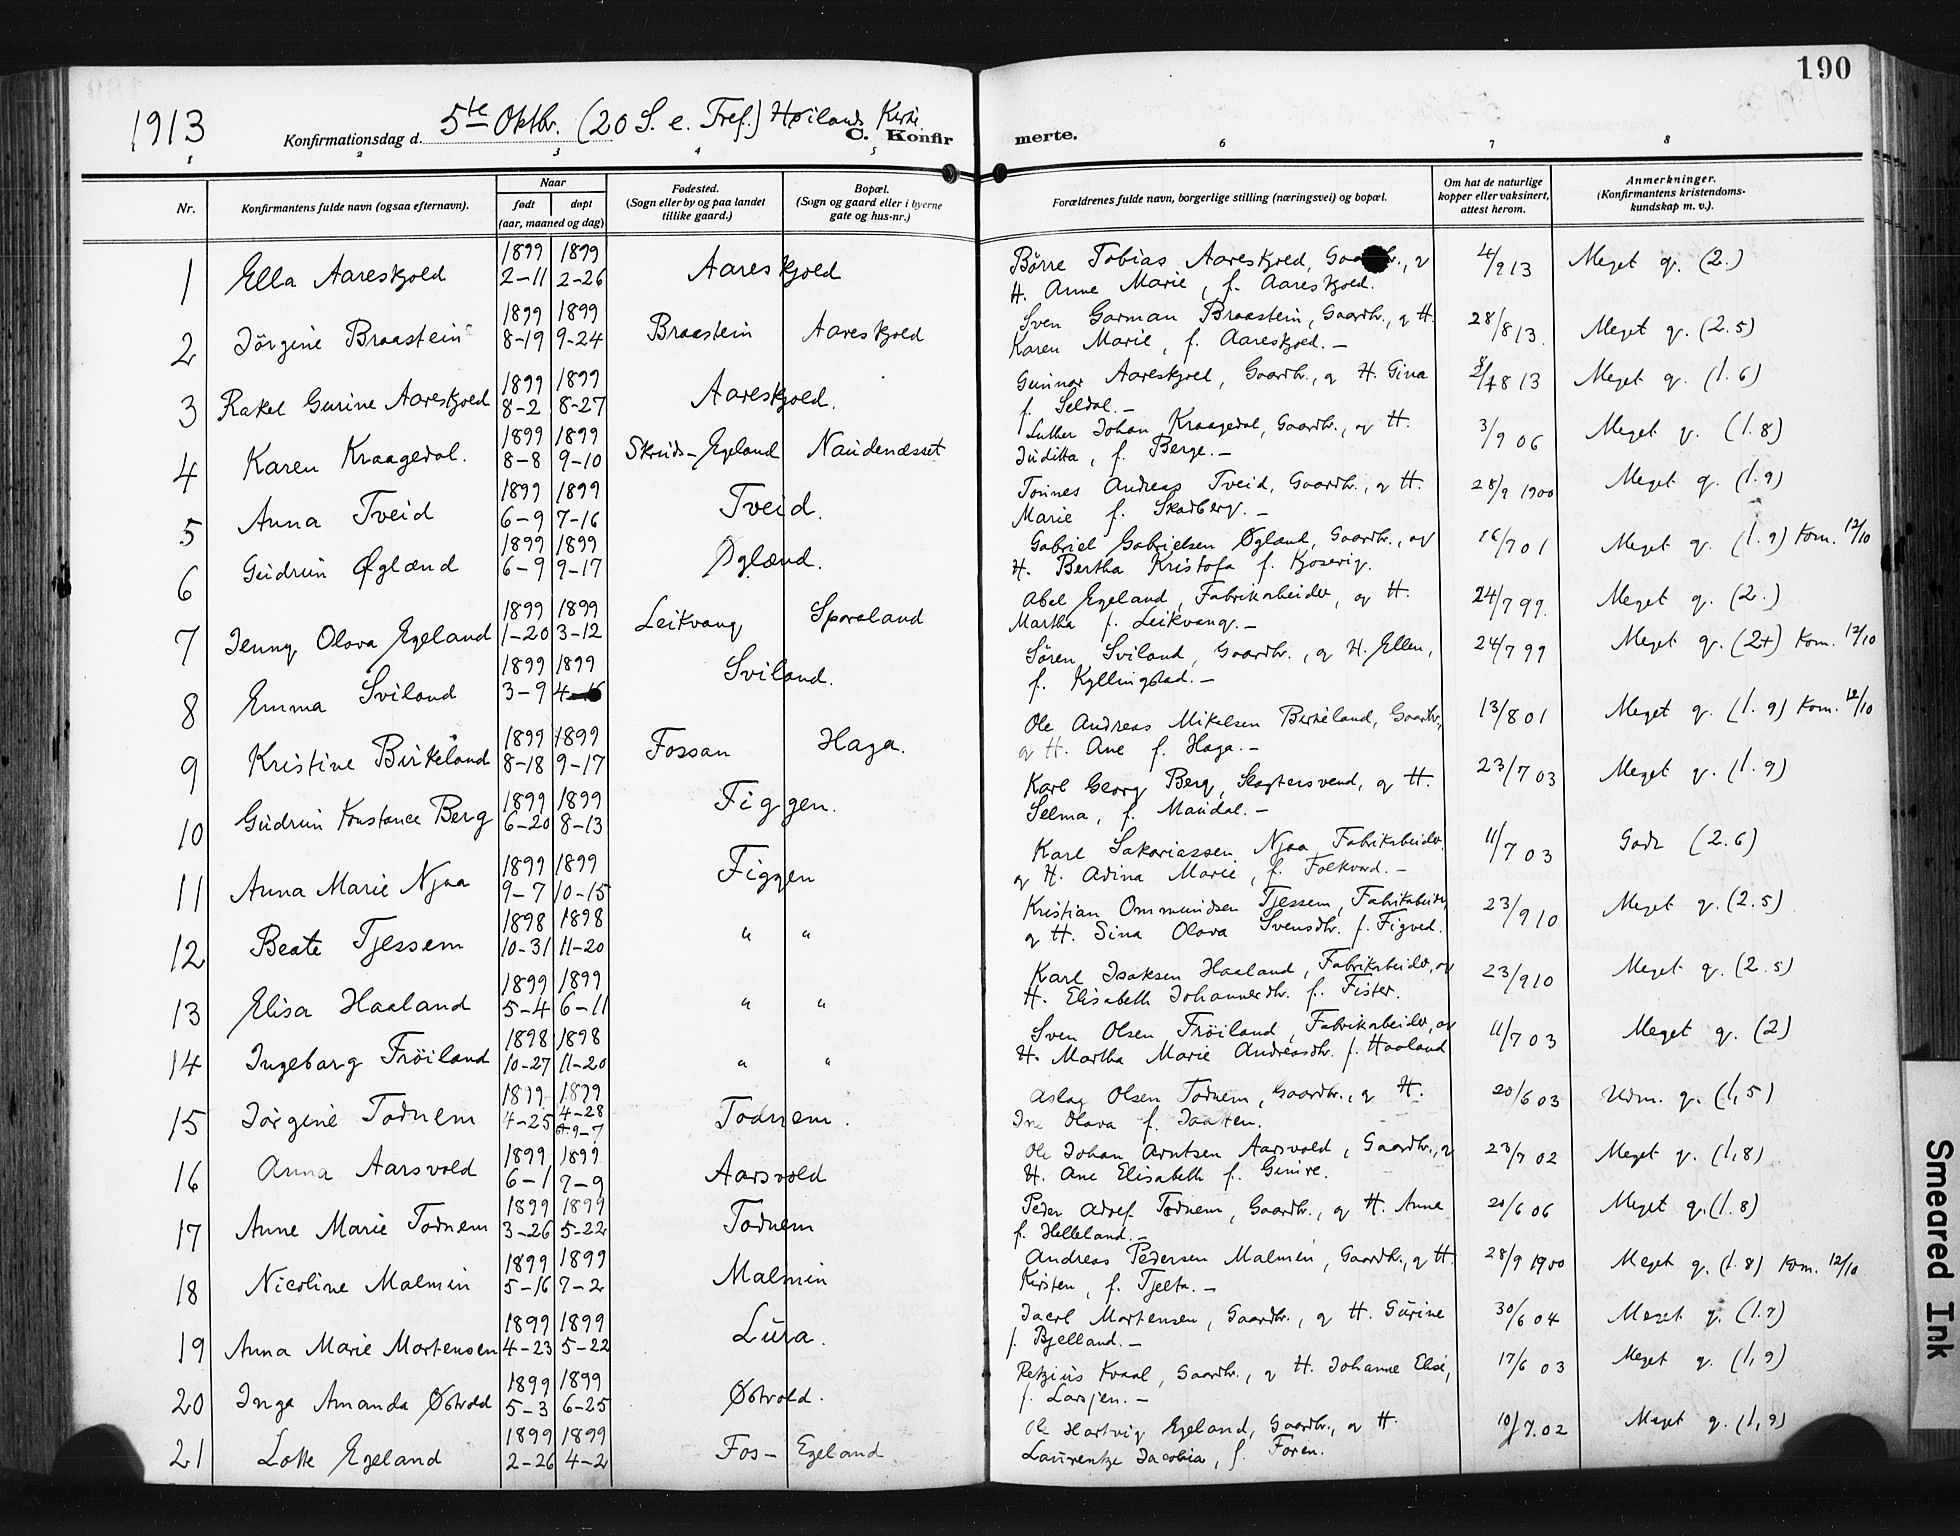 190
1913 5te Oktbr. (20 S. e. Tref.) Høilands Kirke
Konfirmationsdag d. C. Konfirmerte.
1 2 3 4 5 6 7 8
Nr. Konfirmantens fulde navn (ogsaa efternavn). Naar født døpt (aar, maaned og dag) Fødested. (Sogn eller by og paa landet tillike gaard.) Bopæl. (Sogn og gaard eller i byerne gate og hus-nr.) Forældrenes fulde navn, borgerlige stilling (næringsvei) og bopæl. Om hat de naturlige kopper eller vaksinert, attest herom. Anmerkninger. (Konfirmantens kristendoms-kundskap m. v.).
1 Ella Aareskjold 1899 2-11 1899 2-26 Aareskjold Børre Tobias Aareskjold, q 4/9 13 Meget q. (2.)
H. Anne Marie, f. Aareskjold.
2 Jörgine Braastein 1899 8-19 1899 9-24 Braastein Aareskjold Sven Gorman Braastein, Gaardbr., q H. 28/8 13. Meget q. (2.5)
Karen Marie, f. Aareskjold. —
3 Rakel Gurine Aareskjold 1899 8-2 1899 8-27 Aareskjold. Gunnar Aareskjold, Gaardbr., q H. Gina 13 Meget q. (1.6)
f. Seldal. —
4 Karen Kraagedal. 1899 8-8 1899 9-10 Skruds-Egeland Naudenæsset Luther Johan Kraagedal, Gaardbr., og H. 3/9 06 Meget q. (1.8)
Juditta, f. Berge. —
5 Anna Tveid 1899 6-9 1899 7-16 Tveid. Tonnes Andreas Tveid, Gaardbr., q H. 28/9 1900 Meget q. (1.9)
Marie f. Skadberg. —
6 Gudrun Øglænd 1899 6-9 1899 9-17 Øglænd. Gabriel Gabrielsen Øglænd, Gaardbr., og 16/7 01 Meget q. (1.9) Kom. 12/10
H. Bertha Kristofa f. Kjosavig.
7 Jenny Olava Egeland 1899 1-20 1899 3-12 Leikvang Sporaland Abel Egeland, Fabrikarbeider, og H. 24/7 99. Meget q. (2.)
Martha f. Leikvang. —
8 Emma Sviland 1899 3-9 1899 Sviland. Sören Sviland, Gaardbr., q H. Ellen, 24/7 99 Meget q. (2+) Kom. 12/10
f. Kyllingstad. —
9 Kristine Birkeland 1899 8-18 1899 9-17 Fossan Haga. Ole Andreas Mikelsen Birkeland, Gaardbr., 13/8 01 Meget q. (1.9) Kom. 12/10
q H. Ane f. Haga. —
10 Gudrun Konstance Berg 1899 6-20 1899 8-13 Figgen. Karl Georg Berg, Slagtersvend, q H. 23/7 03 Meget q. (1.9)
Selma, f. Maudal. —
11 Anna Marie Njaa 1899 9-7 1899 10-15 Figgen Karl Sakariassen Njaa, Fabrikarbeider, 11/7 03 Godt (2.6)
q H. Adina Marie, f. Folkvord. —
12 Beate Tjessem 1898 10-31 1898 11-20 " " Kristian Ommundsen Tjessem, Fabrikarbeider, 23/9 10 Meget q. (2.5)
q H. Sina Olava Svensdtr. f. Figved.
13 Elisa Haaland 1899 5-4 1899 6-11 " " Karl Isaksen Haaland, Fabrikarbeider, og 23/9 10 Meget q. (2.5)
H. Elisabeth Johannesdtr. f. Fister.
14 Ingeborg Fröiland 1898 10-27 1898 11-20 " " Sven Olsen Fröiland, Fabrikarbeider, og 11/7 03 Meget q. (2)
H. Martha Marie Andreasdtr. f. Haaland
15 Jörgine Todnem 1899 4-25 1899 4-28 9-7 Todnem. Aslag Olsen Todnem, Gaardbr., q H. 20/6 03 Udm. q. (1,5)
Ine Olava f. Jaatten.
16 Anna Aarsvold 1899 6-1 1899 7-9 Aarsvold Ole Johan Arntsen Aarsvold, Gaardbr., q 23/7 02 Meget q. (1,8)
H. Ane Elisabeth f. Gimre.
17 Anne Marie Todnem 1899 3-26 1899 5-22 Todnem Peder Adolf Todnem, Gaardbr., q H. Anne 20/6 06 Meget q. (1.8)
f. Helleland. —
18 Nicoline Malmin 1899 5-16 1899 7-2 Malmin Andreas Pedersen Malmin, Gaardbr., q H. 28/9 1900 Meget q. (1.8) Kom. 12/10
Kirsten, f. Tjelta. —
19 Anna Marie Mortensen 1899 4-23 1899 5-22 Lura. Jacob Mortensen, Gaardbr., q H. Gurine 30/6 04 Meget q. (1.7)
f. Bjelland. —
20 Inga Amanda Østvold 1899 5-3 1899 6-25 Østvold. Retzius Kvaal, Gaardbr., q H. Johanne Elise, 17/6 03 Meget q. (1,9)
f. —
21 Lotte Egeland 1899 2-26 1899 4-2 Fos-Egeland Ole Hartvig Egeland, Gaardbr., q H. 10/7.02 Meget q. (1,9)
Laurentze Jacobia, f. Foren.
Smeared Ink